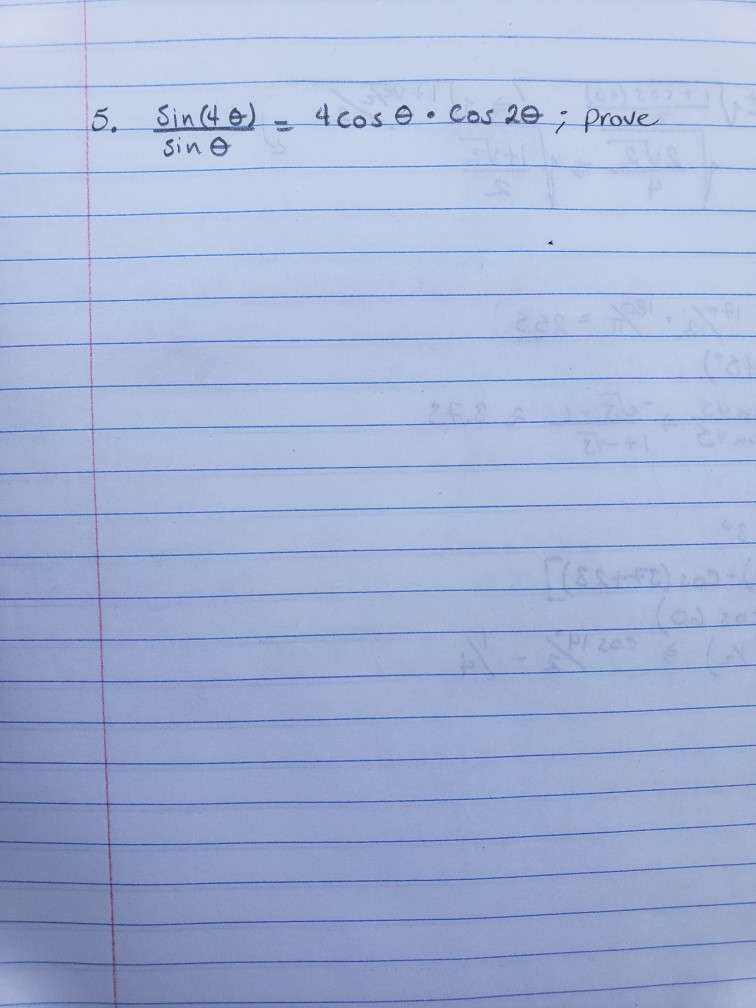 5. Sin(4θ)/sin θ = 4cos θ · Cos 2θ ; prove